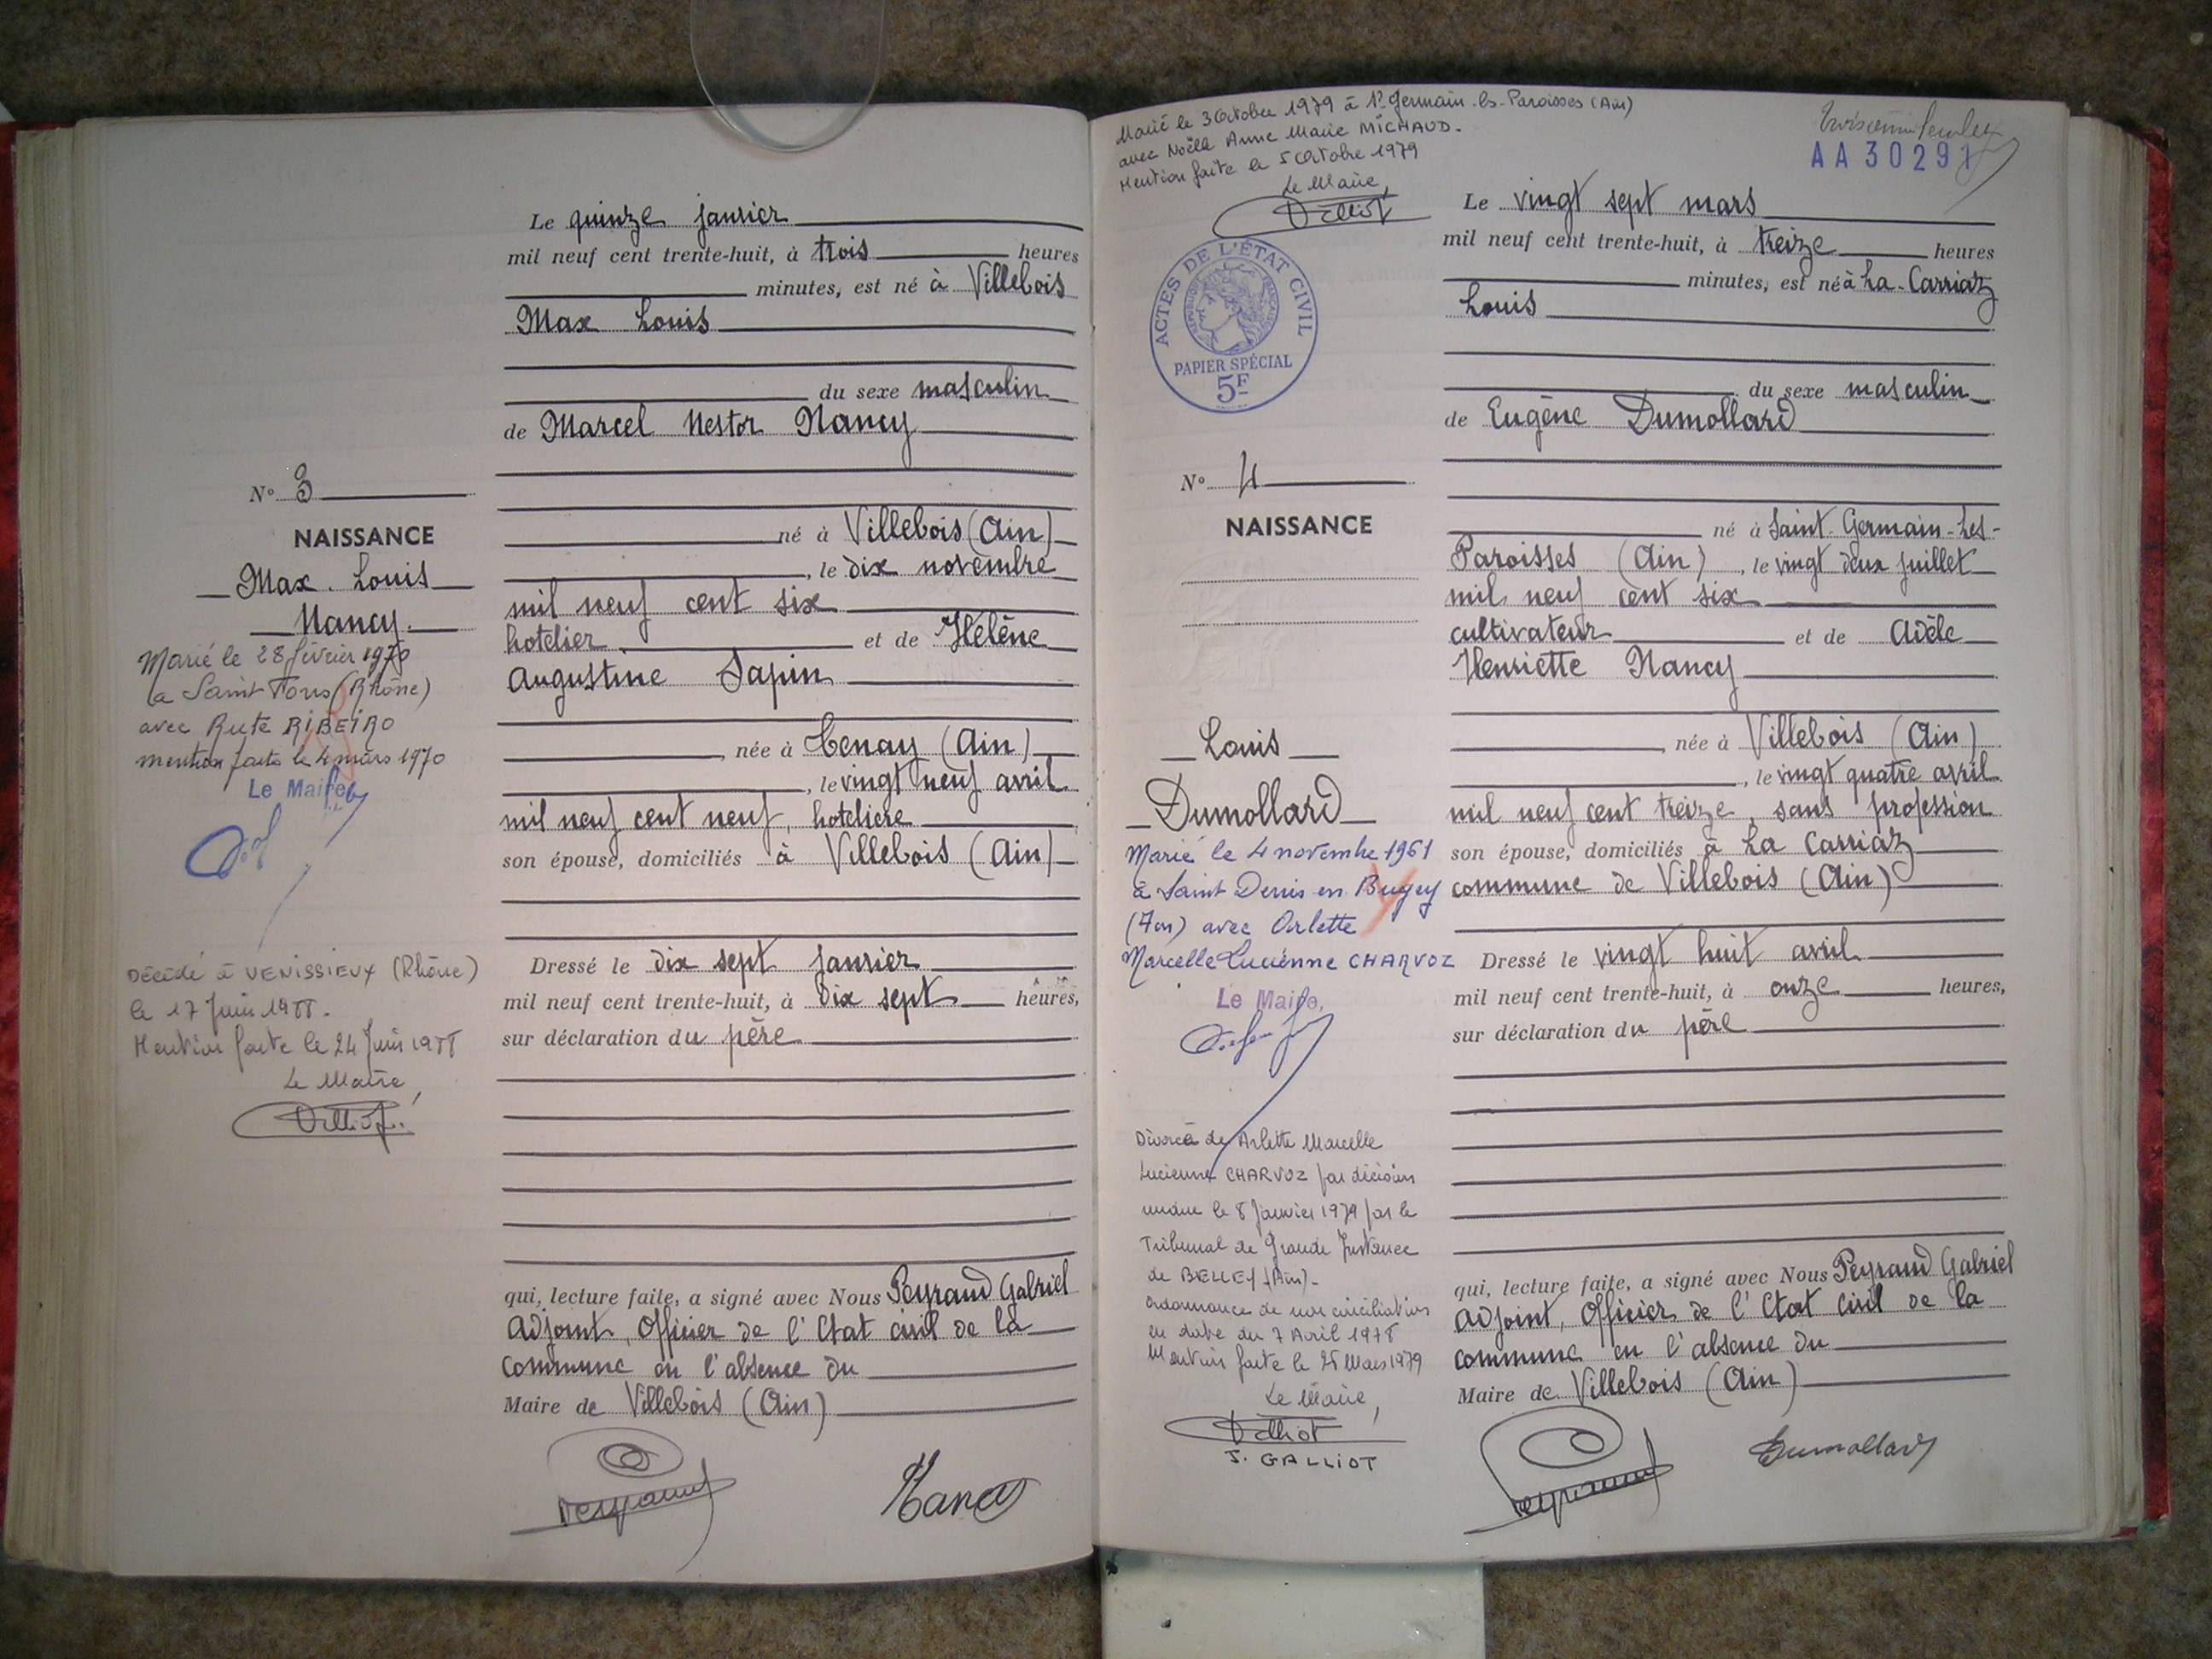 Le quinze janvier
mil neuf cent trente-huit, à trois heures
minutes, est né à Villebois
Max Louis
du sexe masculin
de Marcel Nestor Nancy
né à Villebois (Ain)
, le dix novembre
mil neuf cent six
hotelier et de Hélène
Augustine Sapin
, née à Tenay (Ain)
, le vingt neuf avril
mil neuf cent neuf, hotelière
son épouse, domiciliés à Villebois (Ain)
Dressé le dix sept janvier
mil neuf cent trente-huit, à dix sept heures,
sur déclaration du père
qui, lecture faite, a signé avec Nous Peyraud Gabriel
Adjoint, Officier de l'Etat civil de la
commune en l'absence du
Maire de Villebois (Ain)
Nancy
N° 3
NAISSANCE
Max Louis
Nancy.
Marié le 28 février 1970
à Saint Fons (Rhône)
avec Rute RIBEIRO
mention faite le 4 mars 1970
Le Maire
Décédé à VENISSIEUX (Rhône)
le 17 Juin 1988.
Mention faite le 24 Juin 1988
Le Maire,
Marié le 3 Octobre 1979 à St Germain-les-Paroisses (Ain)
avec Noëlle Anne Marie MICHAUD.
Mention faite le 5 Octobre 1979
Le Maire,
ACTES DE L'ÉTAT CIVIL
RÉPUBLIQUE FRANÇAISE
PAPIER SPÉCIAL
5F
AA 30291
Le vingt sept mars
mil neuf cent trente-huit, à treize heures
minutes, est né à La-Carriaz
Louis
du sexe masculin
de Eugène Dumollard
né à Saint-Germain-Les-
Paroisses (Ain), le vingt deux juillet
mil neuf cent six
cultivateur et de Adèle
Henriette Nancy
, née à Villebois (Ain)
, le vingt quatre avril
mil neuf cent treize, sans profession
son épouse, domiciliés à La Carriaz
commune de Villebois (Ain)
Dressé le vingt huit avril
mil neuf cent trente-huit, à onze heures,
sur déclaration du père
qui, lecture faite, a signé avec Nous Peyraud Gabriel
Adjoint, Officier de l'Etat Civil de la
commune en l'absence du
Maire de Villebois (Ain)
Dumollard
N° 4
NAISSANCE
Louis
Dumollard
Marié le 4 novembre 1961
à Saint Denis en Bugey
(Ain) avec Arlette
Marcelle Lucienne CHARVOZ
Le Maire,
Divorcé de Arlette Marcelle
Lucienne CHARVOZ par décision
rendue le 8 Janvier 1979 par le
Tribunal de Grande Instance
de BELLEY (Ain).
Ordonnance de non conciliation
en date du 7 Avril 1978
Mention faite le 25 Mars 1979
Le Maire,
J. GALLIOT